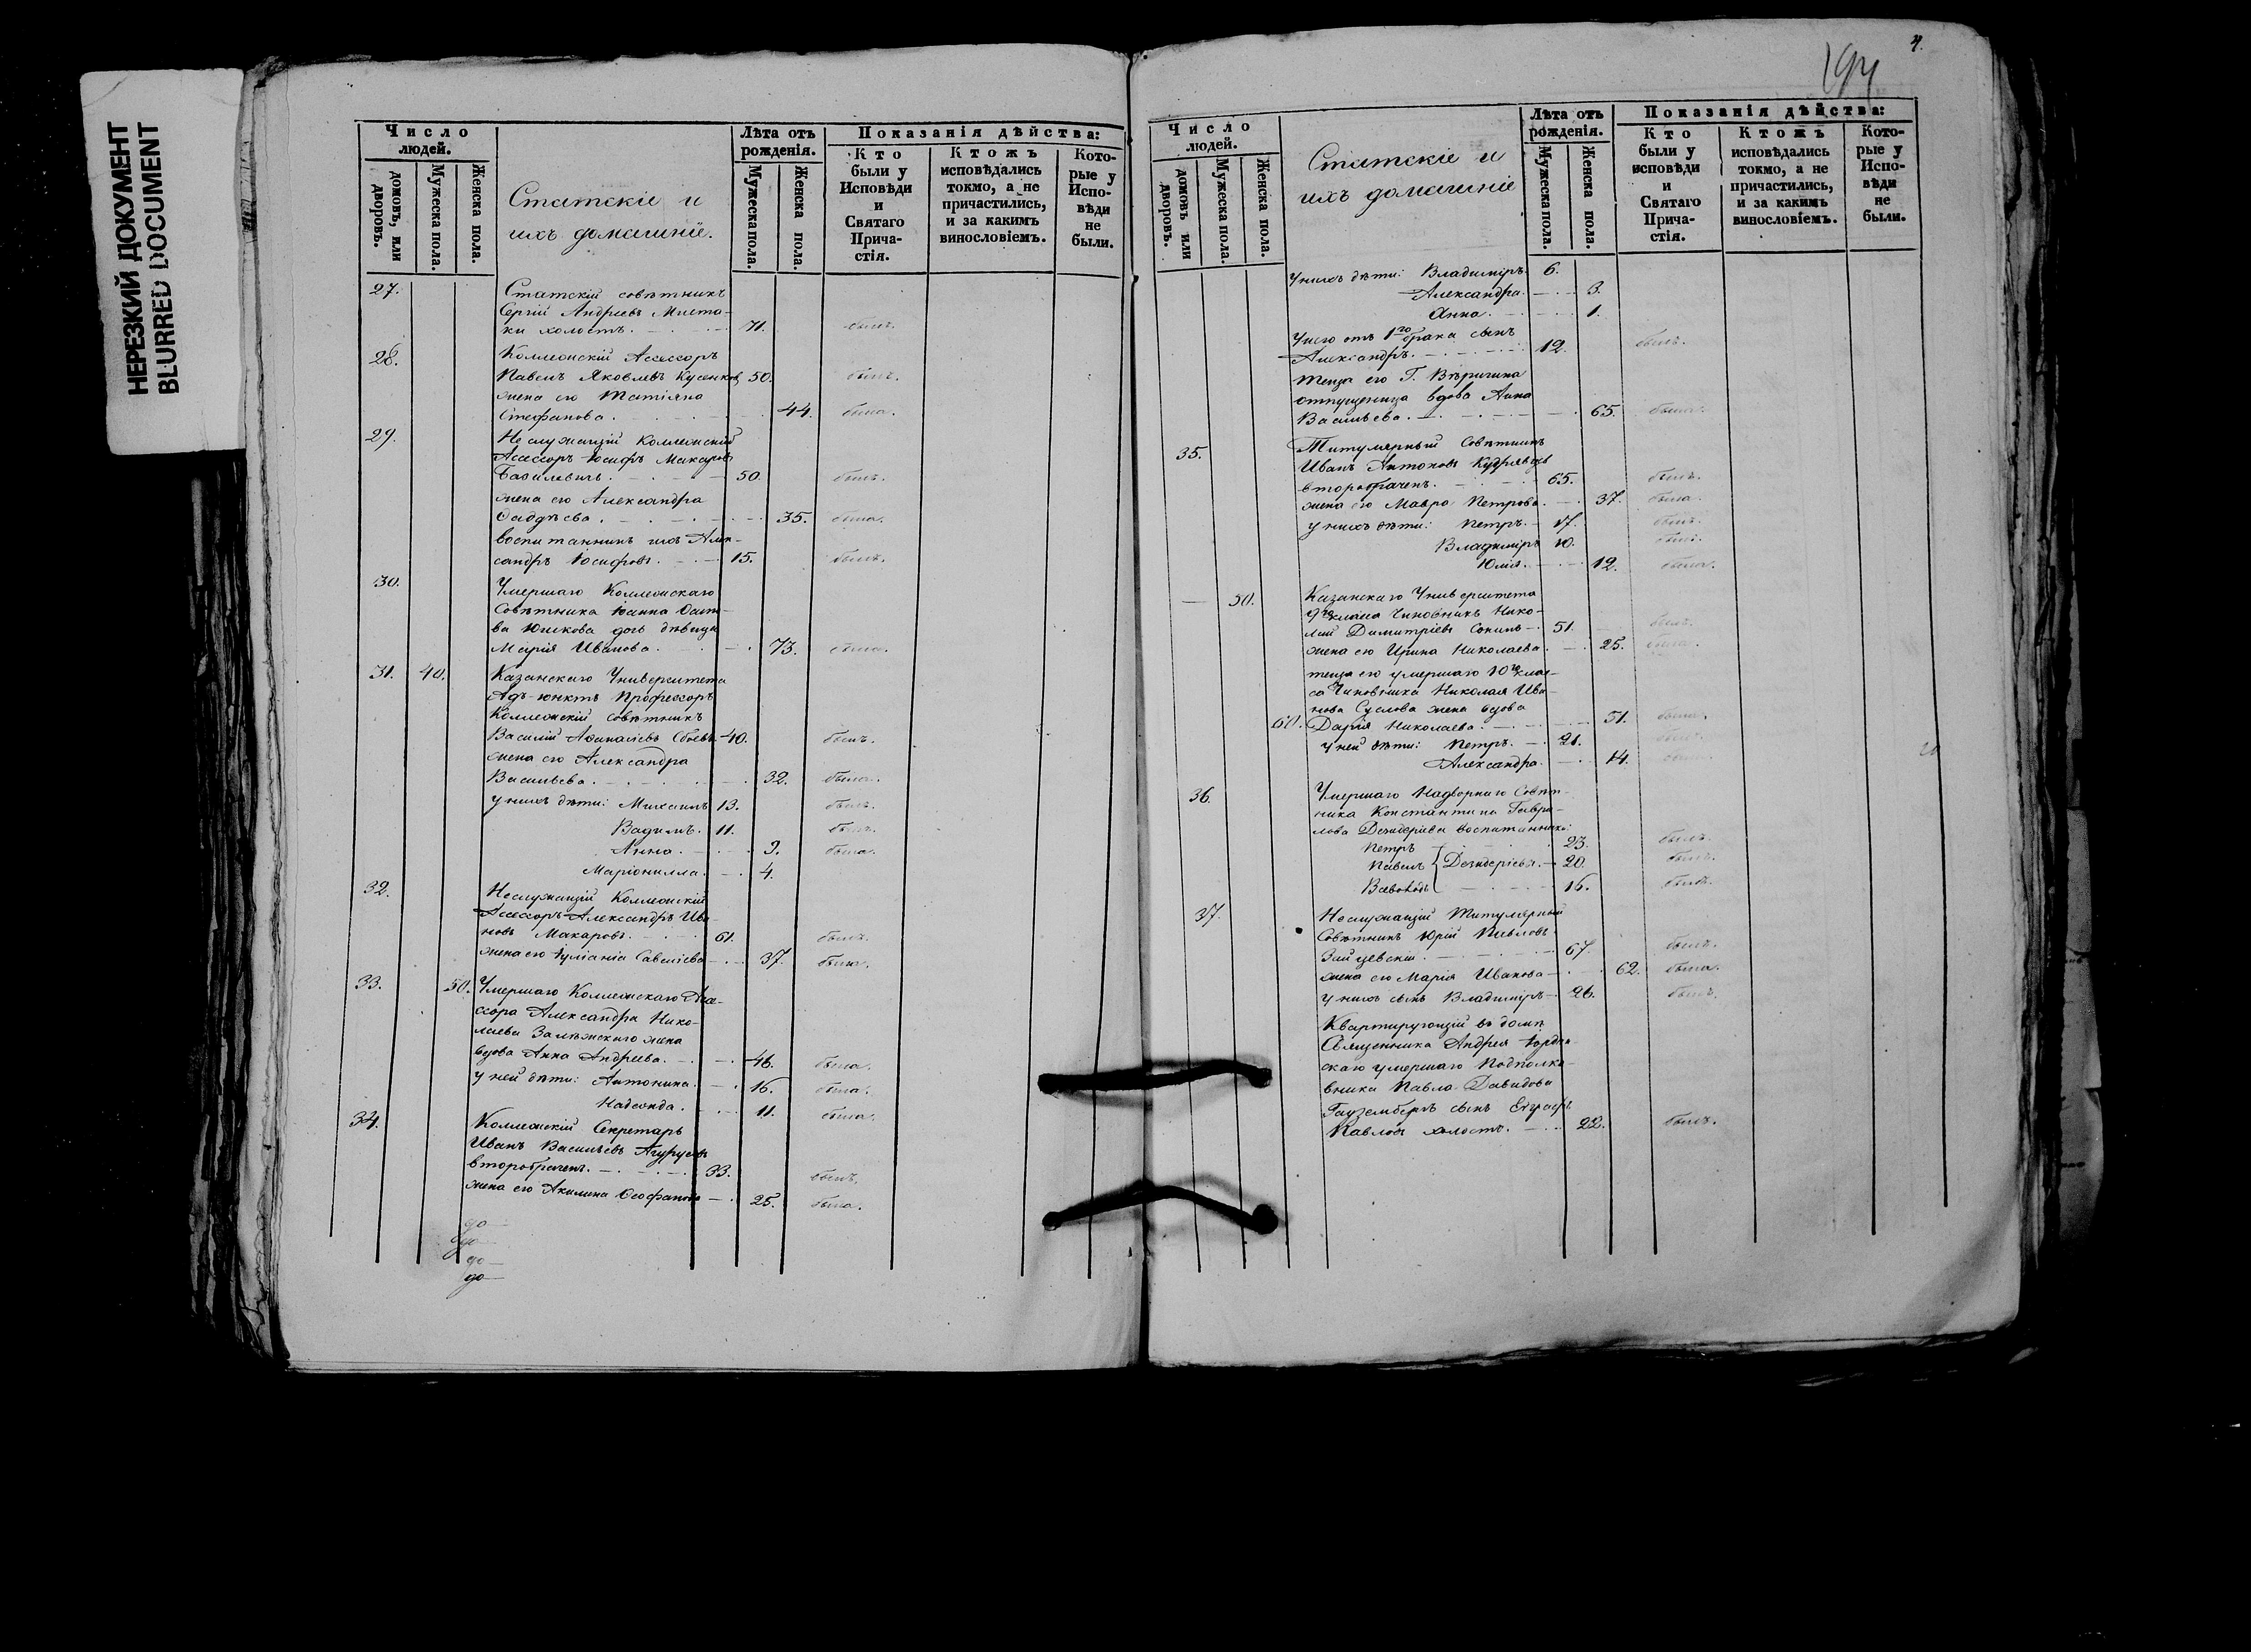 НЕРЕЗКИЙ ДОКУМЕНТ
BLURRED DOCUMENT
Число людей.
домовъ, или дворовъ.
Мужеска пола.
Женска пола.
Статскіе и
ихъ домашніе.
Лѣта отъ рожденія.
Мужеска пола.
Женска пола.
Показанія дѣйства:
Кто были у Исповѣди и Святаго Прича-стія.
Ктожъ исповѣдались токмо, а не причастились, и за какимъ винословіемъ.
Кото-рые у Испо-вѣди не были.
27. Статскій совѣтникъ
Сергій Андреевъ
ки холостъ. 71. былъ.
28. Коллежскій Ассессоръ
Павелъ Яковлевъ 50. былъ.
жена его Татіяна
Стефанова. 44. была.
29. Неслужащій Коллежскій
Асессоръ Іосифъ Макаровъ
Базилевичъ. 50. былъ.
жена его Александра
Фаддѣева. 35. была.
воспитанникъ ихъ Алек-
сандръ Іосифовъ. 15. былъ.
30. Умершаго Коллежскаго
Совѣтника Іоанна
ва Юшкова дочь дѣвица
Марія Иванова. 73. была.
31. 40. Казанскаго Университета
Адъ-юнктъ Профессоръ
Коллежскій совѣтникъ
Василій Аѳанасіевъ Сбоевъ 40. былъ.
жена его Александра
Васильева. 32. была.
у нихъ дѣти: Михаилъ 13. былъ.
Вадимъ. 11. былъ.
Анна. 9. была.
Маріонилла. 4.
32. Неслужащій Коллежскій
Асессоръ Александръ Ива-
новъ Макаровъ. 61. былъ.
жена его Іуліанія Савеліева 37. была.
33. 50. Умершаго Коллежскаго Асе-
ссора Александра Нико-
лаева Залѣжскаго жена
вдова Анна Андреева. 46. была.
у ней дѣти: Антонина. 16. была.
Надежда. 11. была.
34. Коллежскій Секретарь
Иванъ Васильевъ
второбраченъ. 33. былъ.
жена его Акилина Ѳеофанова 25. была.
до
до
до
до
194
4.
Число людей.
домовъ или дворовъ.
Мужеска пола.
Женска пола.
Статскіе и
ихъ домашніе
Лѣта отъ рожденія.
Мужеска пола.
Женска пола.
Показанія дѣйства:
Кто были у исповѣди и Святаго Прича-стія.
Ктожъ исповѣдались токмо, а не причастились, и за какимъ винословіемъ.
Кото-рые у Испо-вѣди не были.
У нихъ дѣти: Владиміръ. 6.
Александра. 3.
Анна. 1.
У него отъ 1го брака сынъ
Александръ. 12. былъ.
теща его Г.
отпущеница вдова Анна
Васильева. 65. была.
35. Титулярный Совѣтникъ
Иванъ Антоновъ Кудрявцевъ
второбраченъ. 65. былъ.
жена его Мавра Петрова. 37. была.
у нихъ дѣти: Петръ. 17. былъ.
Владиміръ 10. былъ.
Юлія. 12. была.
50. Казанскаго Университета
9го класса Чиновникъ Нико-
лай Димитріевъ 51. былъ.
жена его Ирина Николаева. 25. была.
теща его умершаго 10го клас-
са Чиновника Николая Ива-
нова Суслова жена вдова
60. Дарія Николаева. 51. была.
у ней дѣти: Петръ. 21. былъ.
Александра. 14. была.
36. Умершаго Надворнаго Совѣт-
ника Константина Гаври-
лова Дезидеріева воспитанники:
Петръ 23. былъ.
Павелъ Дезидеріевы. 20. былъ.
Всеволодъ 16. былъ.
37. Неслужащій Титулярный
Совѣтникъ Юрій Павловъ
67. былъ.
жена его Марія Иванова 62. была.
у нихъ сынъ Владиміръ 26. былъ.
Квартирующій въ домѣ
Священника Андрея Іордан-
скаго умершаго Подполко-
вника Павла Давидова
сынъ Евграфъ
Павловъ холостъ. 22. былъ.